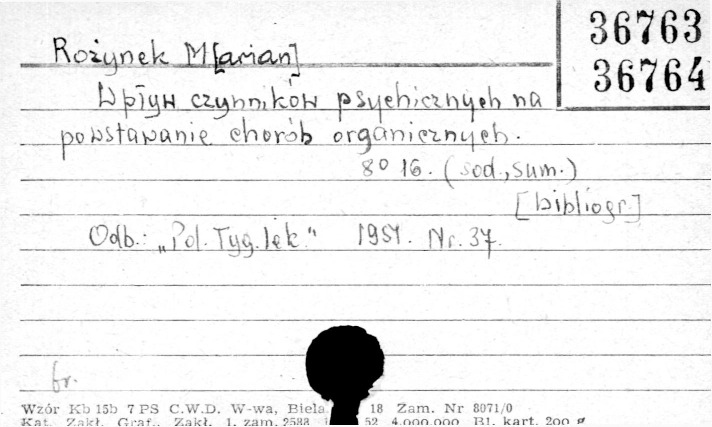 36763
36764
Rożynek M[arian]
Wpływ czynników psychicznych na
powstawanie chorób organicznych.
8° 16. (sod., sum.)
[bibliogr.]
Odb.: „Pol. Tyg. lek." 1951. Nr. 37.
br.
Wzór Kb 15b 7 PS C.W.D. W-wa, Biela 18 Zam. Nr 8071/0
Kat. Zakł. Graf., Zakł. 1, zam. 2588 52 4.000.000 B1. kart. 200 g